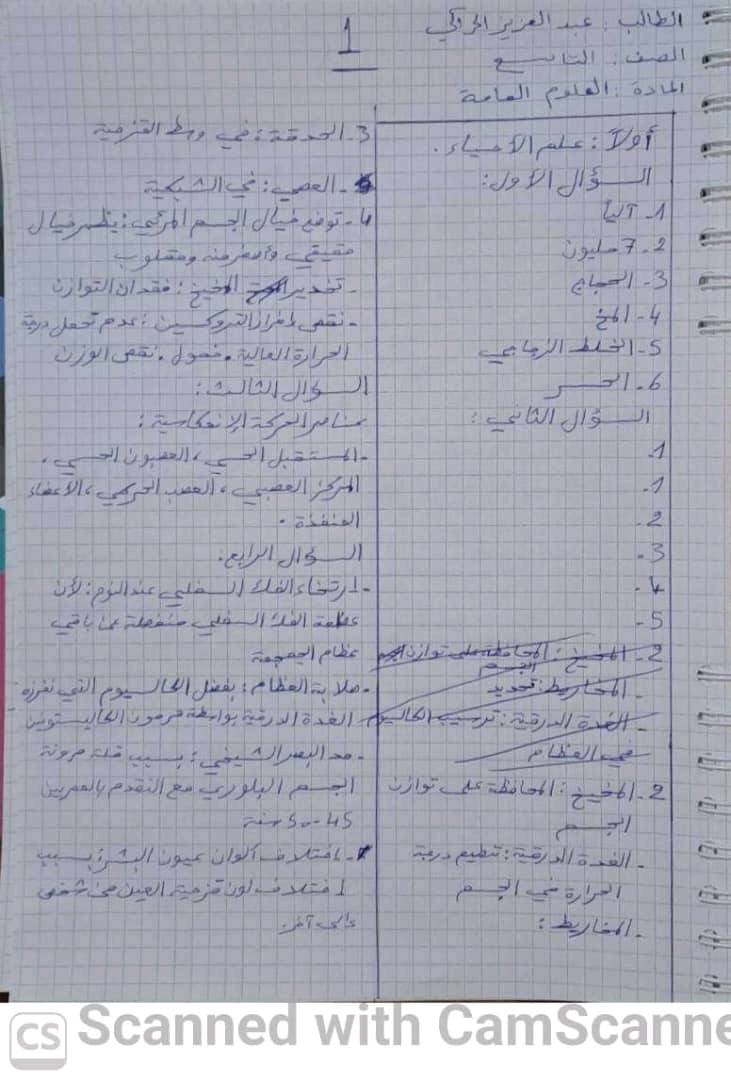 الطالب : عبد العزيز
الصف : التاسع
المادة : العلوم العامة
1
أولاً : علم الأحياء .
السؤال الأول :
1- آلياً
2- 7 مليون
3- الحجاج
4- المخ
5- الخلط الزجاجي
6- الحسر
السؤال الثاني :
1-
1-
2-
3-
4-
5-
2- المخيخ : المحافظة على توازن
الجسم
- المخاريط : تحديد
- الغدة الدرقية : ترسيب الكالسيوم
في العظام
2- المخيخ : المحافظة على توازن
الجسم
- الغدة الدرقية : تنظيم درجة
الحرارة في الجسم
- المخاريط :
3- الحدقة : في وسط القزحية
- العصي : في الشبكية
4- توضع خيال الجسم المرئي : يظهر خيال
حقيقي وأصغر منه ومقلوب
- تخدير المخيخ : فقدان التوازن
- نقص إفراز التروكسين : عدم تحمل درجة
الحرارة العالية . خمول . نقص الوزن
السؤال الثالث :
عناصر الحركة الانعكاسية :
- المستقبل الحسي ، العصبون الحسي .
المركز العصبي ، العصب الحركي ، الأعضاء
المنفذة .
السؤال الرابع .
- ارتخاء الفك السفلي عند النوم : لأن
عظمة الفك السفلي منفصلة عن باقي
عظام الجمجمة
- صلابة العظام : بفضل الكالسيوم التي تفرزه
الغدة الدرقية بواسطة هرمون الكالسيتونين
- مد البصر الشيخي : بسبب قلة مرونة
الجسم البلوري مع التقدم بالعمر بين
45-50 سنة
- اختلاف ألوان عيون البشر : بسبب
اختلاف لون قزحية العين من شخص
إلى آخر .
CS Scanned with CamScanne